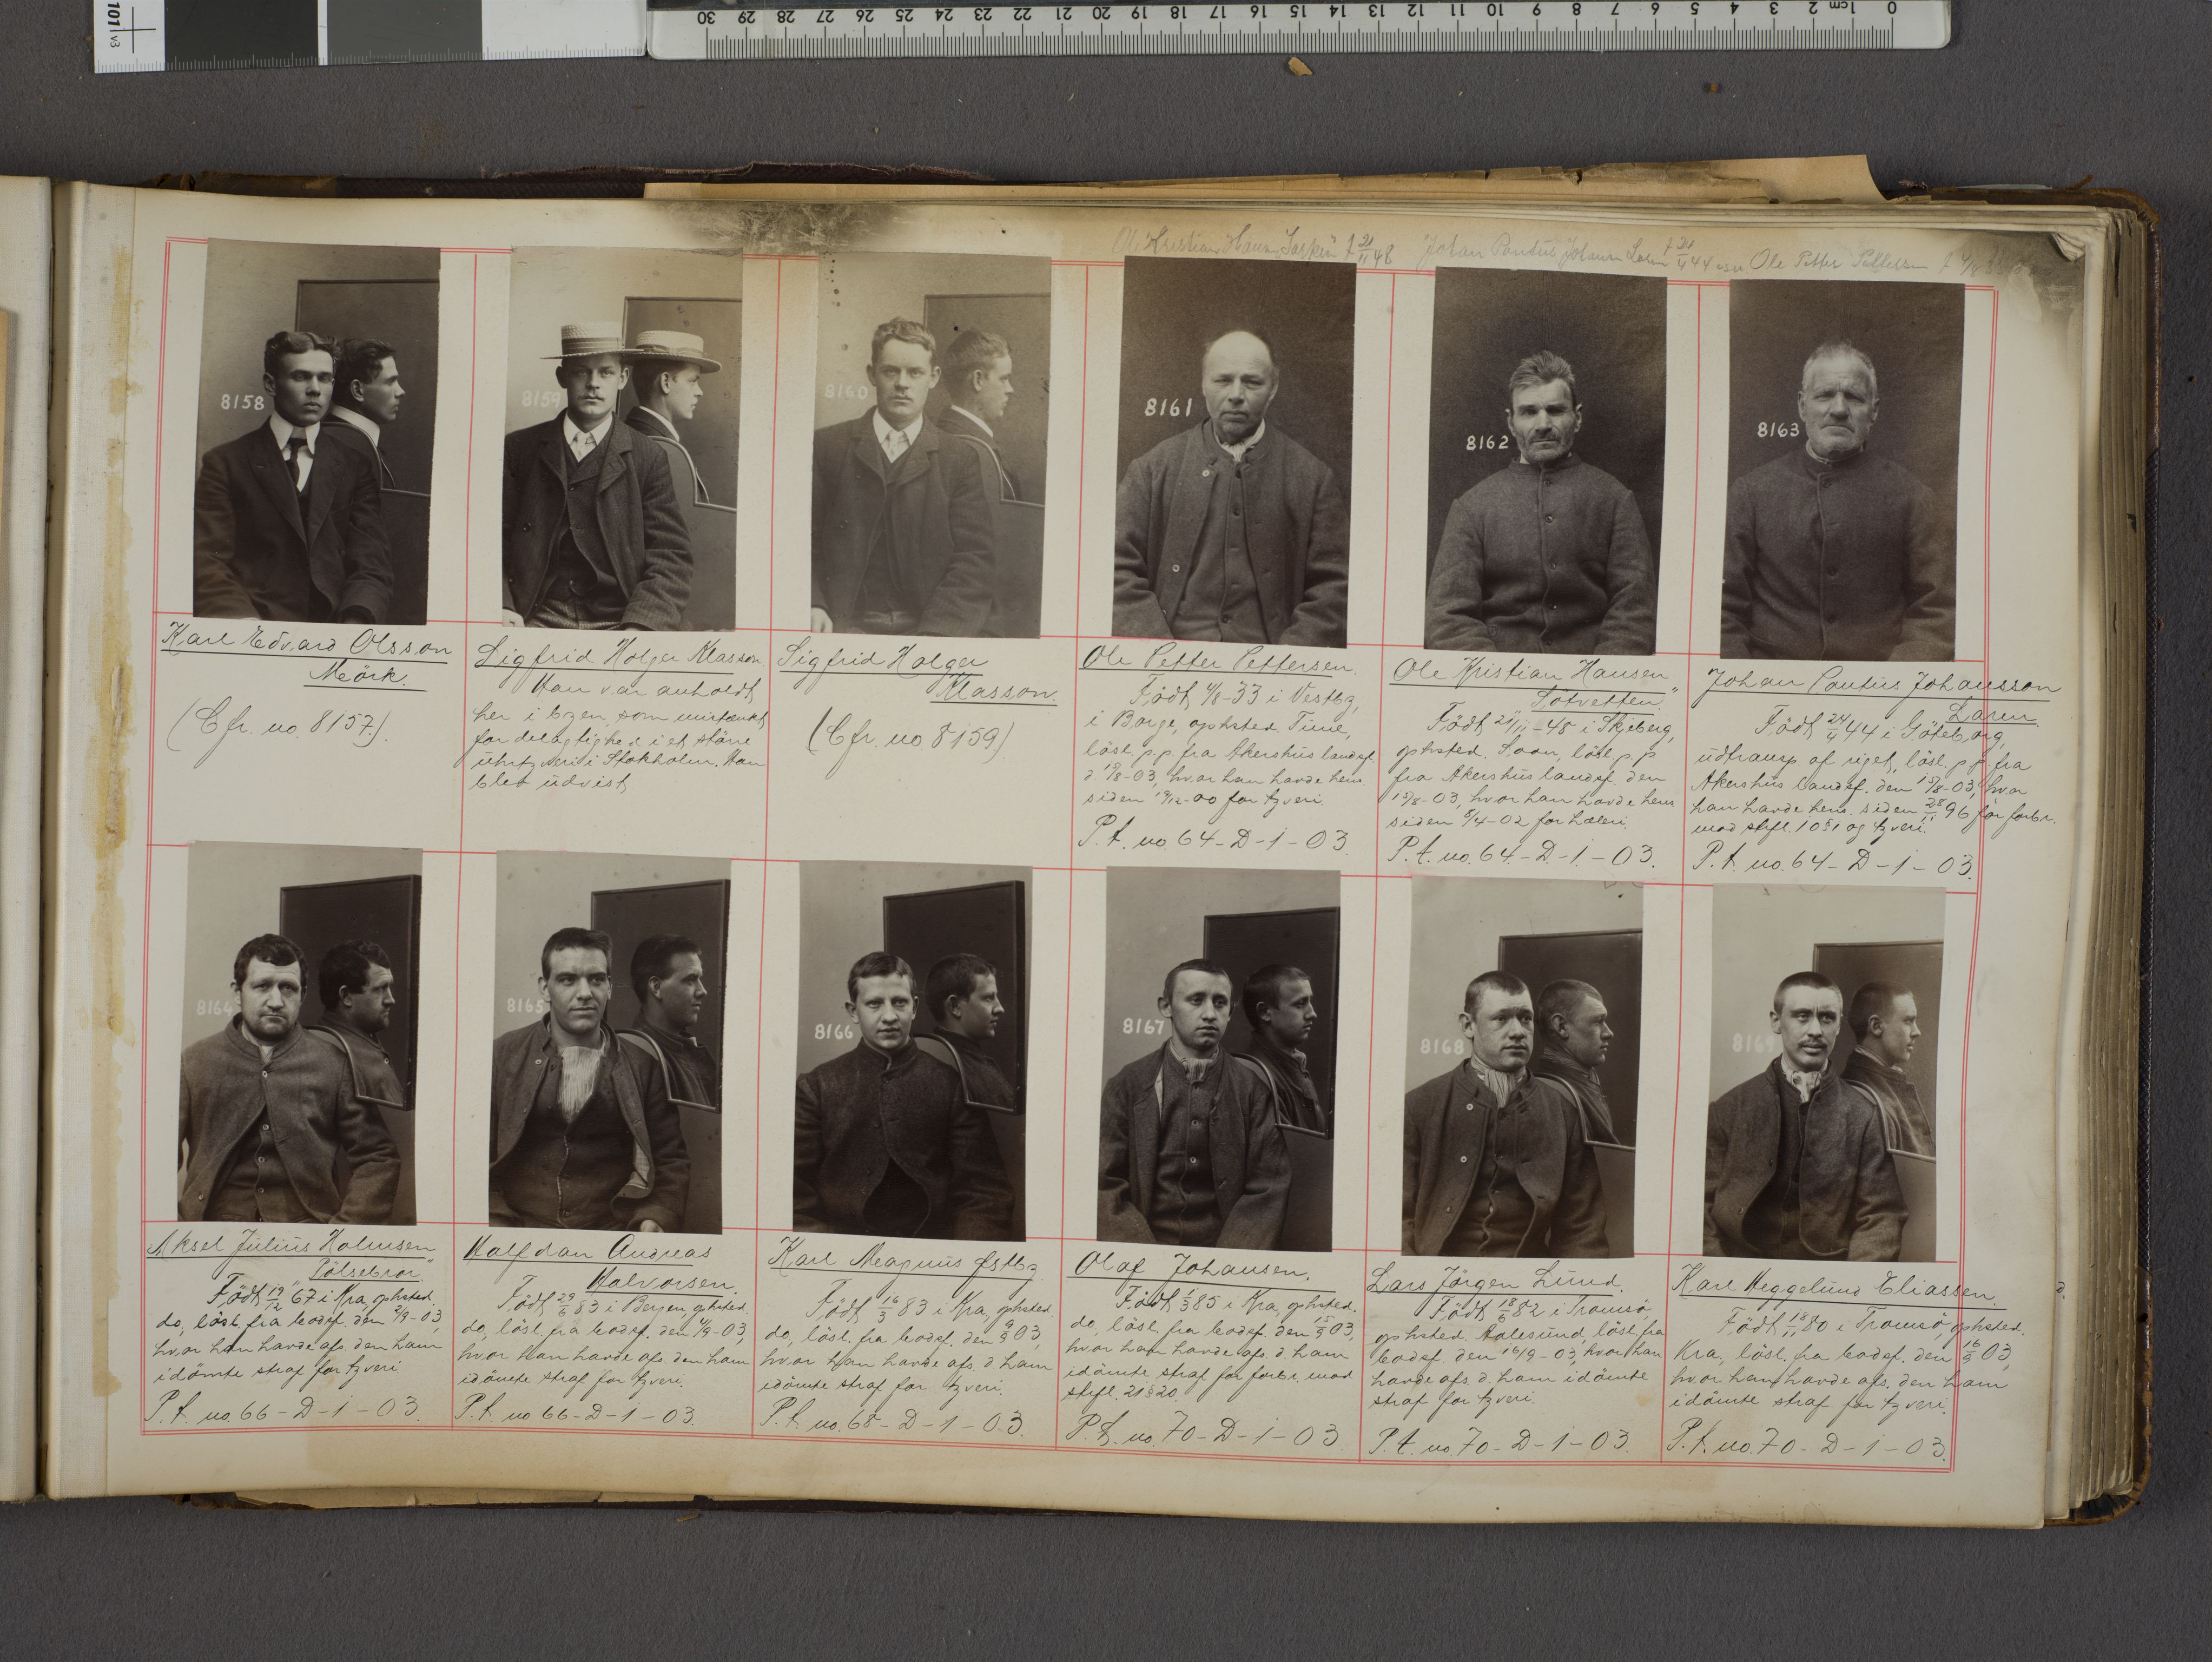 101 v3
30 29 28 27 26 25 24 23 22 21 20 19 18 17 16 15 14 13 12 11 10 9 8 7 6 5 4 3 2 1cm 0
Ole Kristian Hansen f 21/11 48 Johan Pontus Johanss Laren f 24/4 44 Ole Petter Pettersen f 4/8 33
8158
8159
8160
8161
8162
8163
Karl Edvard Olsson
Mörk.
(Cfr. no. 8157.)
Sigfrid Holger Klasson
Han var anholdt
her i byen, som mistænkt
for delagtighed i et större
uhrtyveri i Stokholm. Han
blev udvist
Sigfrid Holger
Klasson.
(Cfr. no 8159)
Ole Petter Pettersen
Födt 4/8-33 i Vestby,
i Borge, ophsted. Tune,
lösl. p.p. fra Akershus landsf.
d. 15/8-03, hvor han havde hens.
siden 19/12-00 for tyveri.
P.t. no. 64-D-1-03.
Ole Kristian Hansen
"Tötvetten"
Födt 21/11-48 i Skjeberg,
ophsted. Soon, lösl. p.p
fra Akershus landsf. den
15/8-03, hvor han havde hens
siden 8/4-02 for hæleri.
P.t. no. 64-D-1-03.
Johan Pontus Johansson
Laren
Födt 24/4 44 i Göteborg,
udtransp. af riget, lösl. p.p. fra
Akershus landsf. den 15/8-03, hvor
han havde hens. siden 28/11 96 for forbr.
mod stfl. 10 § 1 og tyveri.
P.t. no. 64-D-1-03.
8164
8165
8166
8167
8168
8169
Aksel Julius Holmsen
"Pölsebror"
Födt 19/12 67 i Kra, ophsted.
do, lösl. fra bodsf. den 2/9-03,
hvor han havde afs. den ham
idömte straf for tyveri
P.t. no. 66-D-1-03.
Halfdan Andreas
Halvorsen.
Födt 29/6 83 i Bergen, ophsted.
do, lösl. fra bodsf. den 4/9-03,
hvor han havde afs. den ham
idömte straf for tyveri.
P.t. no 66-D-1-03.
Karl Magnus Østby
Födt 16/3 83 i Kra, ophsted.
do, lösl. fra bodsf. den 9/9 03,
hvor han havde afs. d. ham
idömte straf for tyveri.
P.t. no. 68-D-1-03.
Olaf Johansen.
Födt 1/3 85 i Kra, ophsted.
do, lösl. fra bodsf. den 15/9 03,
hvor han havde afs. d. ham
idömte straf for forbr. mod
stfl. 21 § 20.
P.t. no. 70-D-1-03
Lars Jörgen Lund.
Födt 18/6 82 i Tromsö,
ophsted. Aalesund, lösl. fra
bodsf. den 16/9-03, hvor han
havde afs. d. ham idömte
straf for tyveri.
P.t. no. 70-D-1-03.
Karl Heggelund Eliassen.
Födt 18/11 80 i Tromsö, ophsted.
Kra., lösl. fra bodsf. den 16/9 03,
hvor han havde afs. den ham
idömte straf for tyveri.
P.t. no. 70-D-1-03